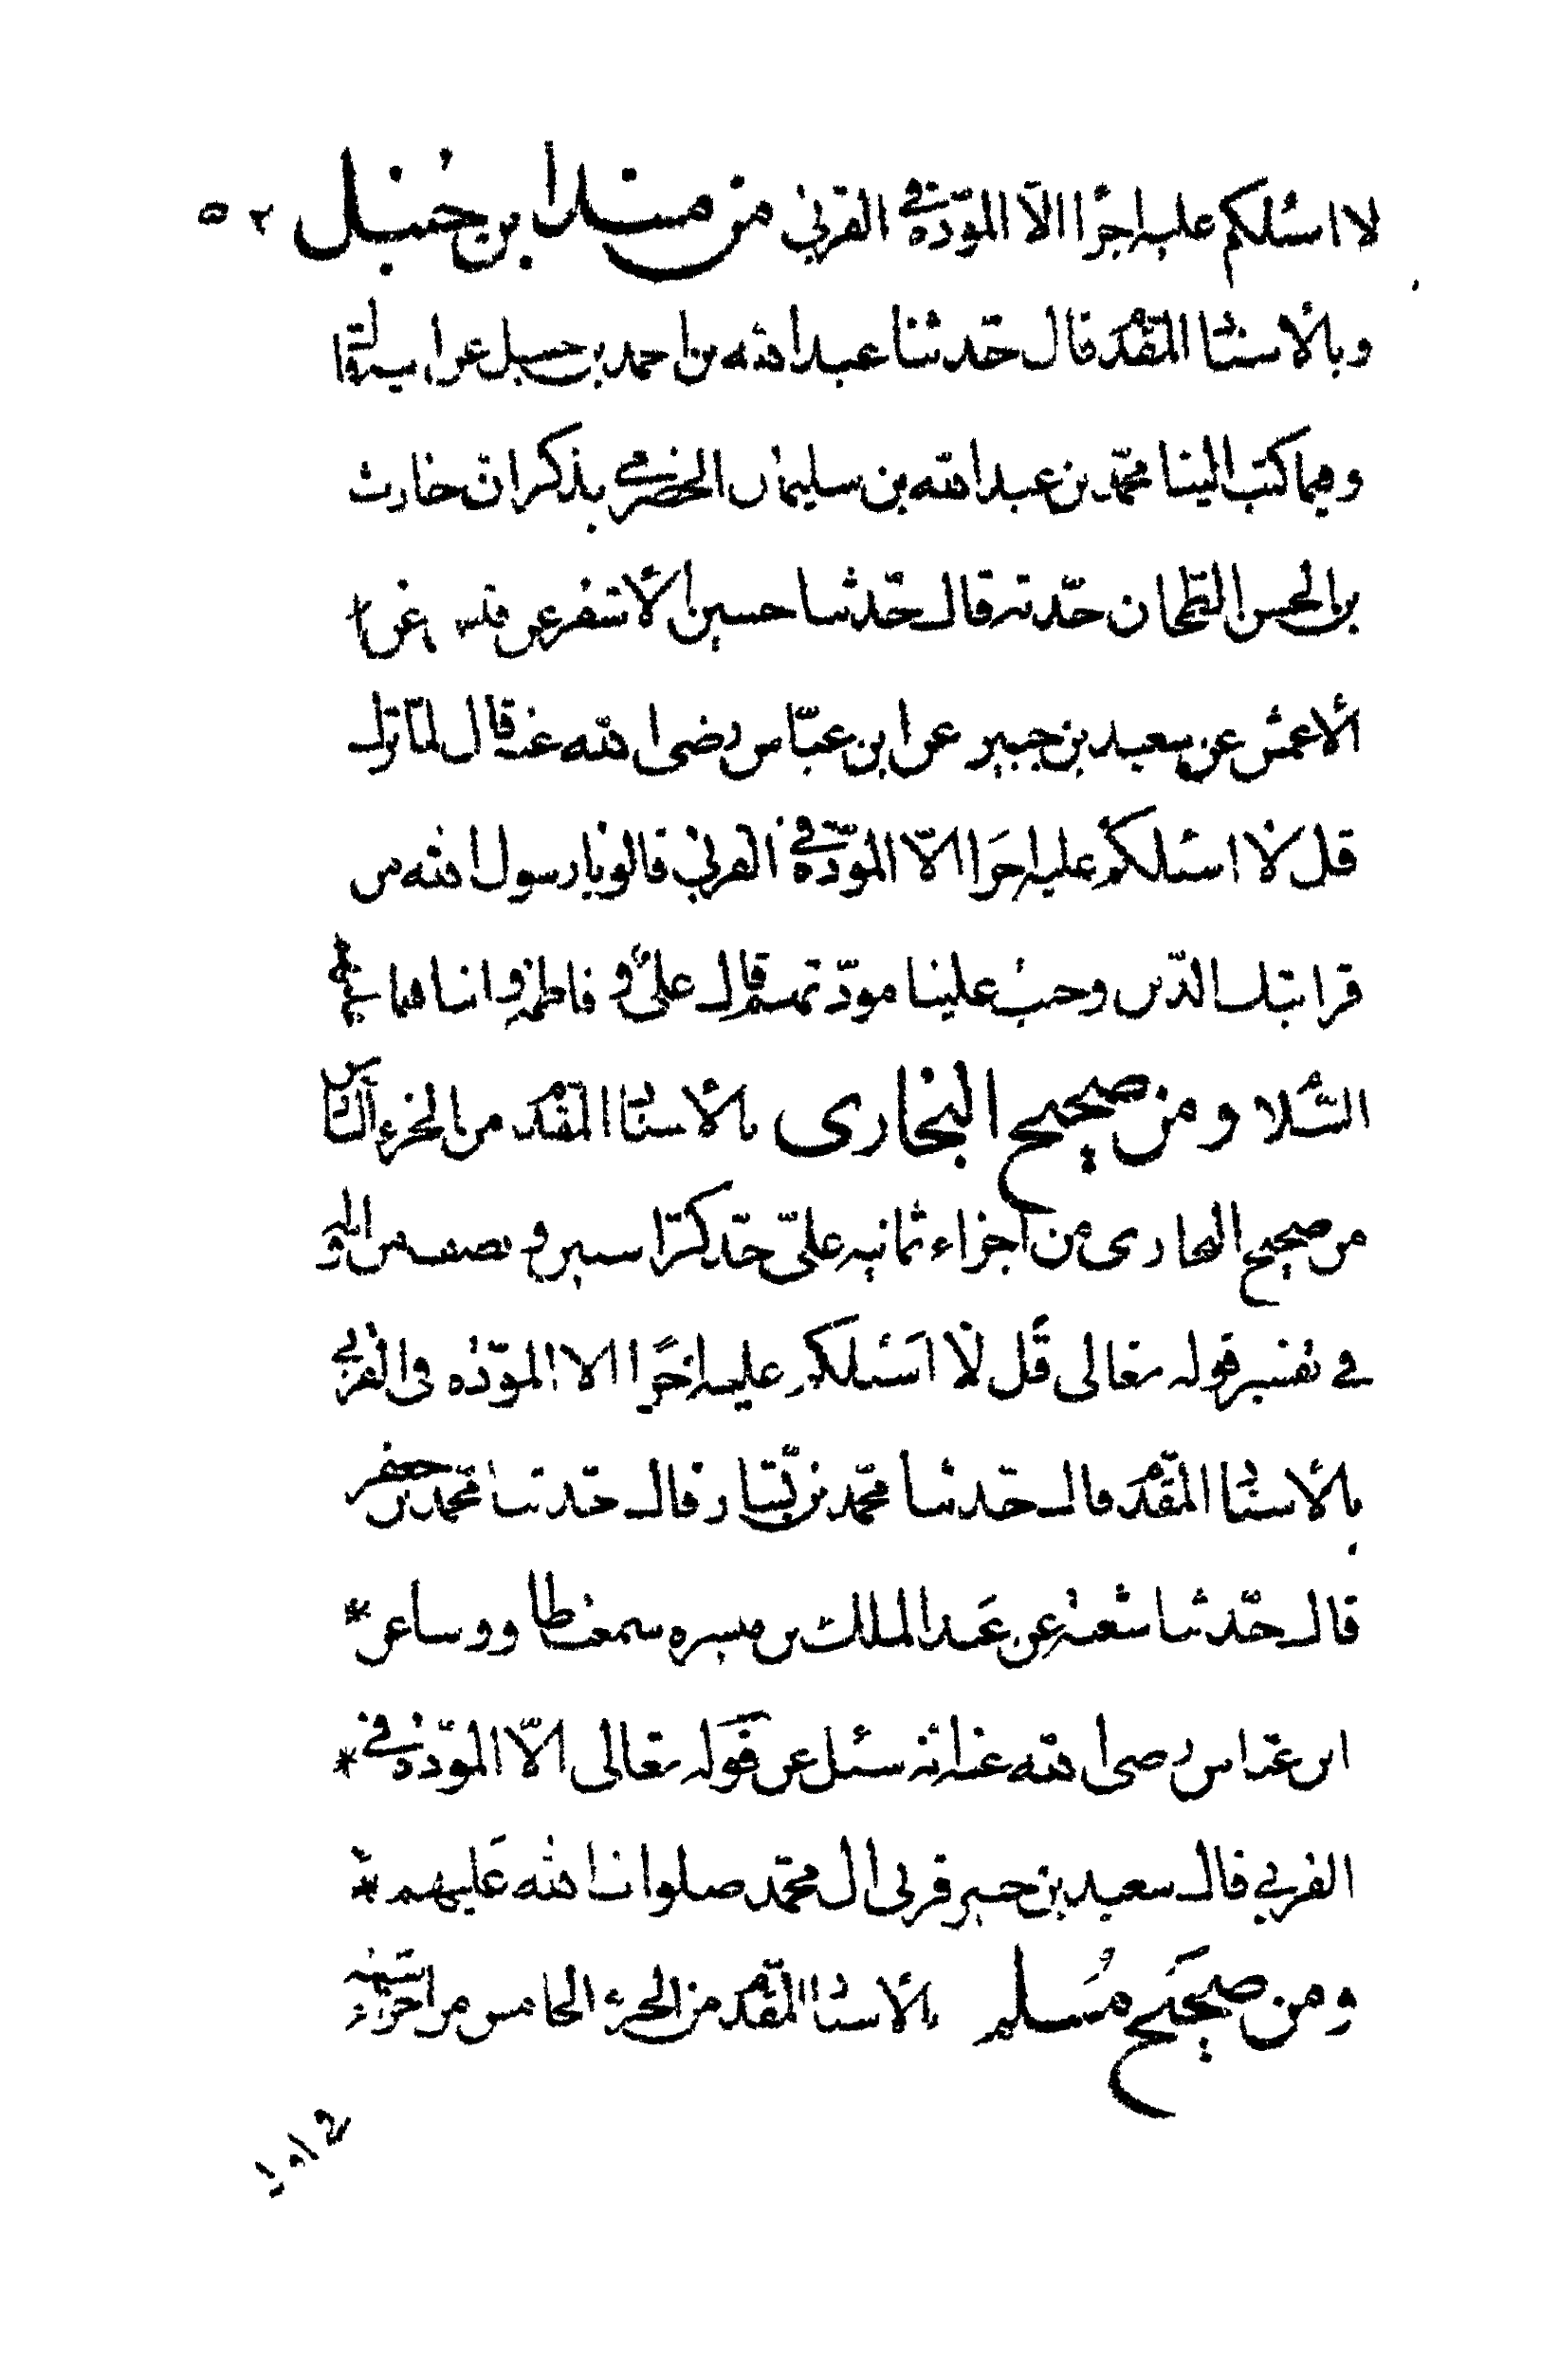 لا اسئلكم عليه اجرا الا المودة في القربى من مسند ابن حنبل ٢٥
وبالاسناد المقدم قال حدثنا عبد الله بن احمد بن حنبل عن ابيه قال
وفيما كتب الينا محمد بن عبد الله بن سليمان الحضرمي يذكر ان حارث
بن الحسن الطحان حدثه قال حدثنا حسين الاشقر عن قيس عن
الاعمش عن سعيد بن جبير عن ابن عباس رضى الله عنه قال لما نزلت
قل لا اسئلكم عليه اجرا الا المودة في القربى قالوا يا رسول الله من
قرابتك الذين وجبت علينا مودتهم قال على و فاطمة و ابناهما عليهم
السلام ومن صحيح البخارى بالاسناد المقدم من الجزء السادس
من صحيح البخارى من اجزاء ثمانيه على حد كراسين و نصف من اوله
في تفسير قوله تعالى قل لا اسئلكم عليه اجرا الا المودة فى القربى
بالاسناد المقدم قال حدثنا محمد بن بشار قال حدثنا محمد بن جعفر
قال حدثنا شعبة عن عبد الملك بن ميسره سمعت طاووسا عن
ابن عباس رضى الله عنه انه سئل عن قوله تعالى الا المودة في
القربى قال سعيد بن جبير قربى ال محمد صلوات الله عليهم
ومن صحيح مسلم بالاسناد المقدم من الجزء الخامس من اجزاء ستة